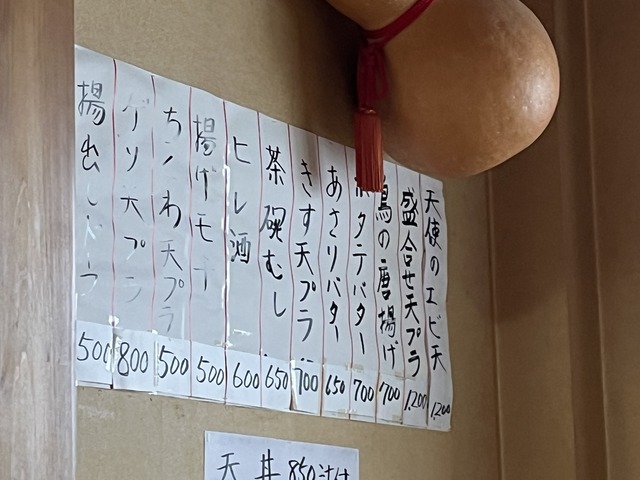 天使のエビ天 1,200
盛合せ天プラ 1,200
鳥の唐揚げ 700
ホタテバター 700
あさりバター 650
きす天プラ 700
茶碗むし 650
ヒレ酒 600
揚げモチ 500
ちくわ天プラ 500
ゲソ天プラ 800
揚出しドーフ 500
天丼 850